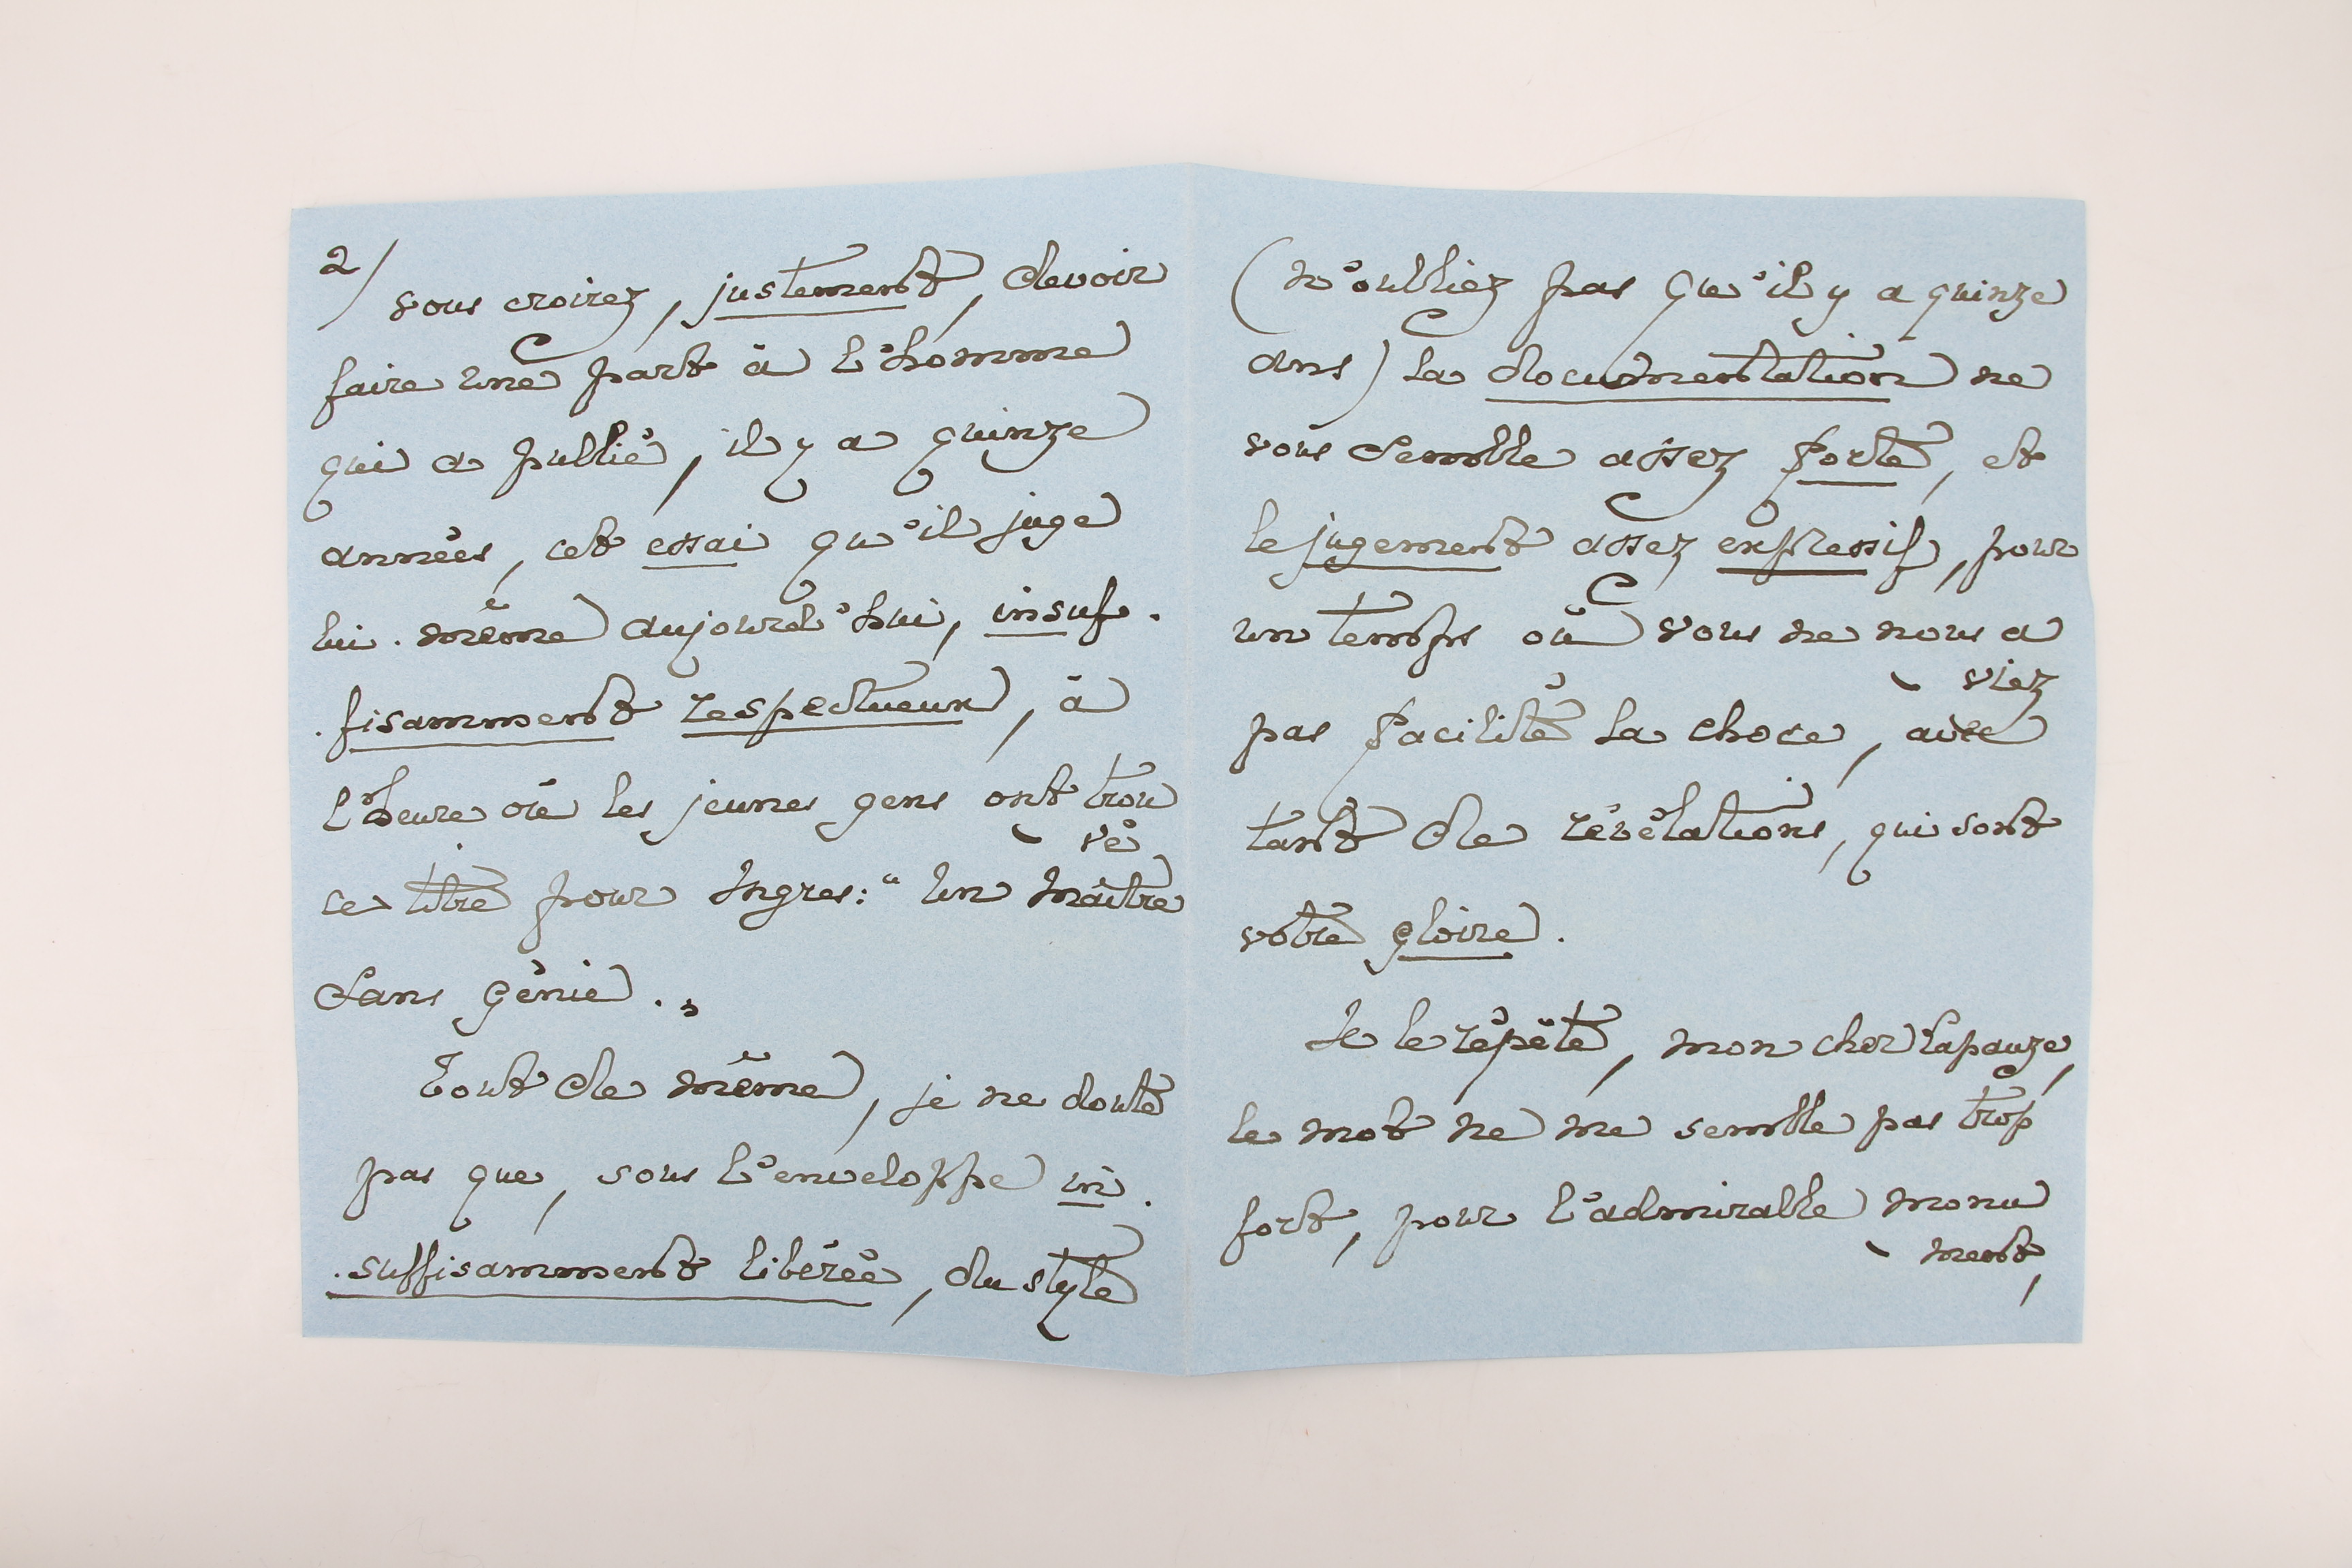 2/ vous croirez, justement, devoir
faire une part à l'homme
qui a publié, il y a quinze
années, cet essai qu'il juge
lui-même aujourd'hui, insuf-
-fisamment respectueux, à
l'heure où les jeunes gens ont trou
-vé
ce titre pour Ingres: "Un Maître
sans génie."
Tout de même, je ne doute
pas que, sous l'enveloppe in-
-suffisamment libérée, du style
(n'oubliez pas qu'il y a quinze
ans) la documentation ne
vous semble assez forte, et
le jugement assez expressif, pour
un temps où vous ne nous a
-viez
pas facilité la chose, avec
tant de révélations, qui sont
votre gloire.
Je le répète, mon cher Lapauze,
le mot ne me semble pas trop
fort, pour l'admirable monu
-ment,